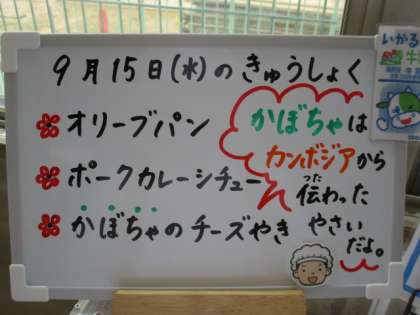 9月15日(水)のきゅうしょく
オリーブパン
ポークカレーシチュー
かぼちゃのチーズやき
かぼちゃは
カンボジアから
伝わった
つた
やさい
だよ。
いかる
牛